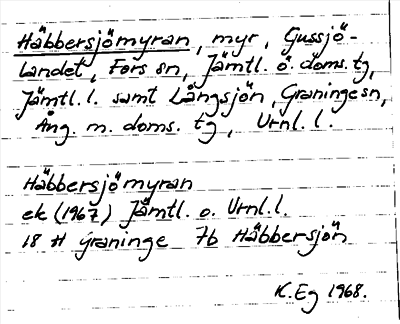 Häbbersjömyran, myr, Gussjö-
landet, Fors sn, Jämtl. ö. doms. tg,
Jämtl. l. samt Långsjön, Graninge sn,
Ång. m. doms. tg, Vrnl. l.
Häbbersjömyran
ek (1967) Jämtl. o. Vrnl. l.
18 H Graninge 7b Häbbersjön
K. Eg 1968.